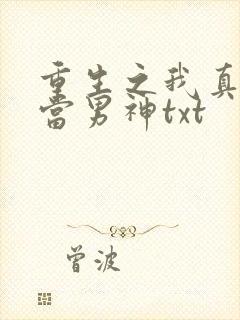 重生之我真
当男神txt
曾波